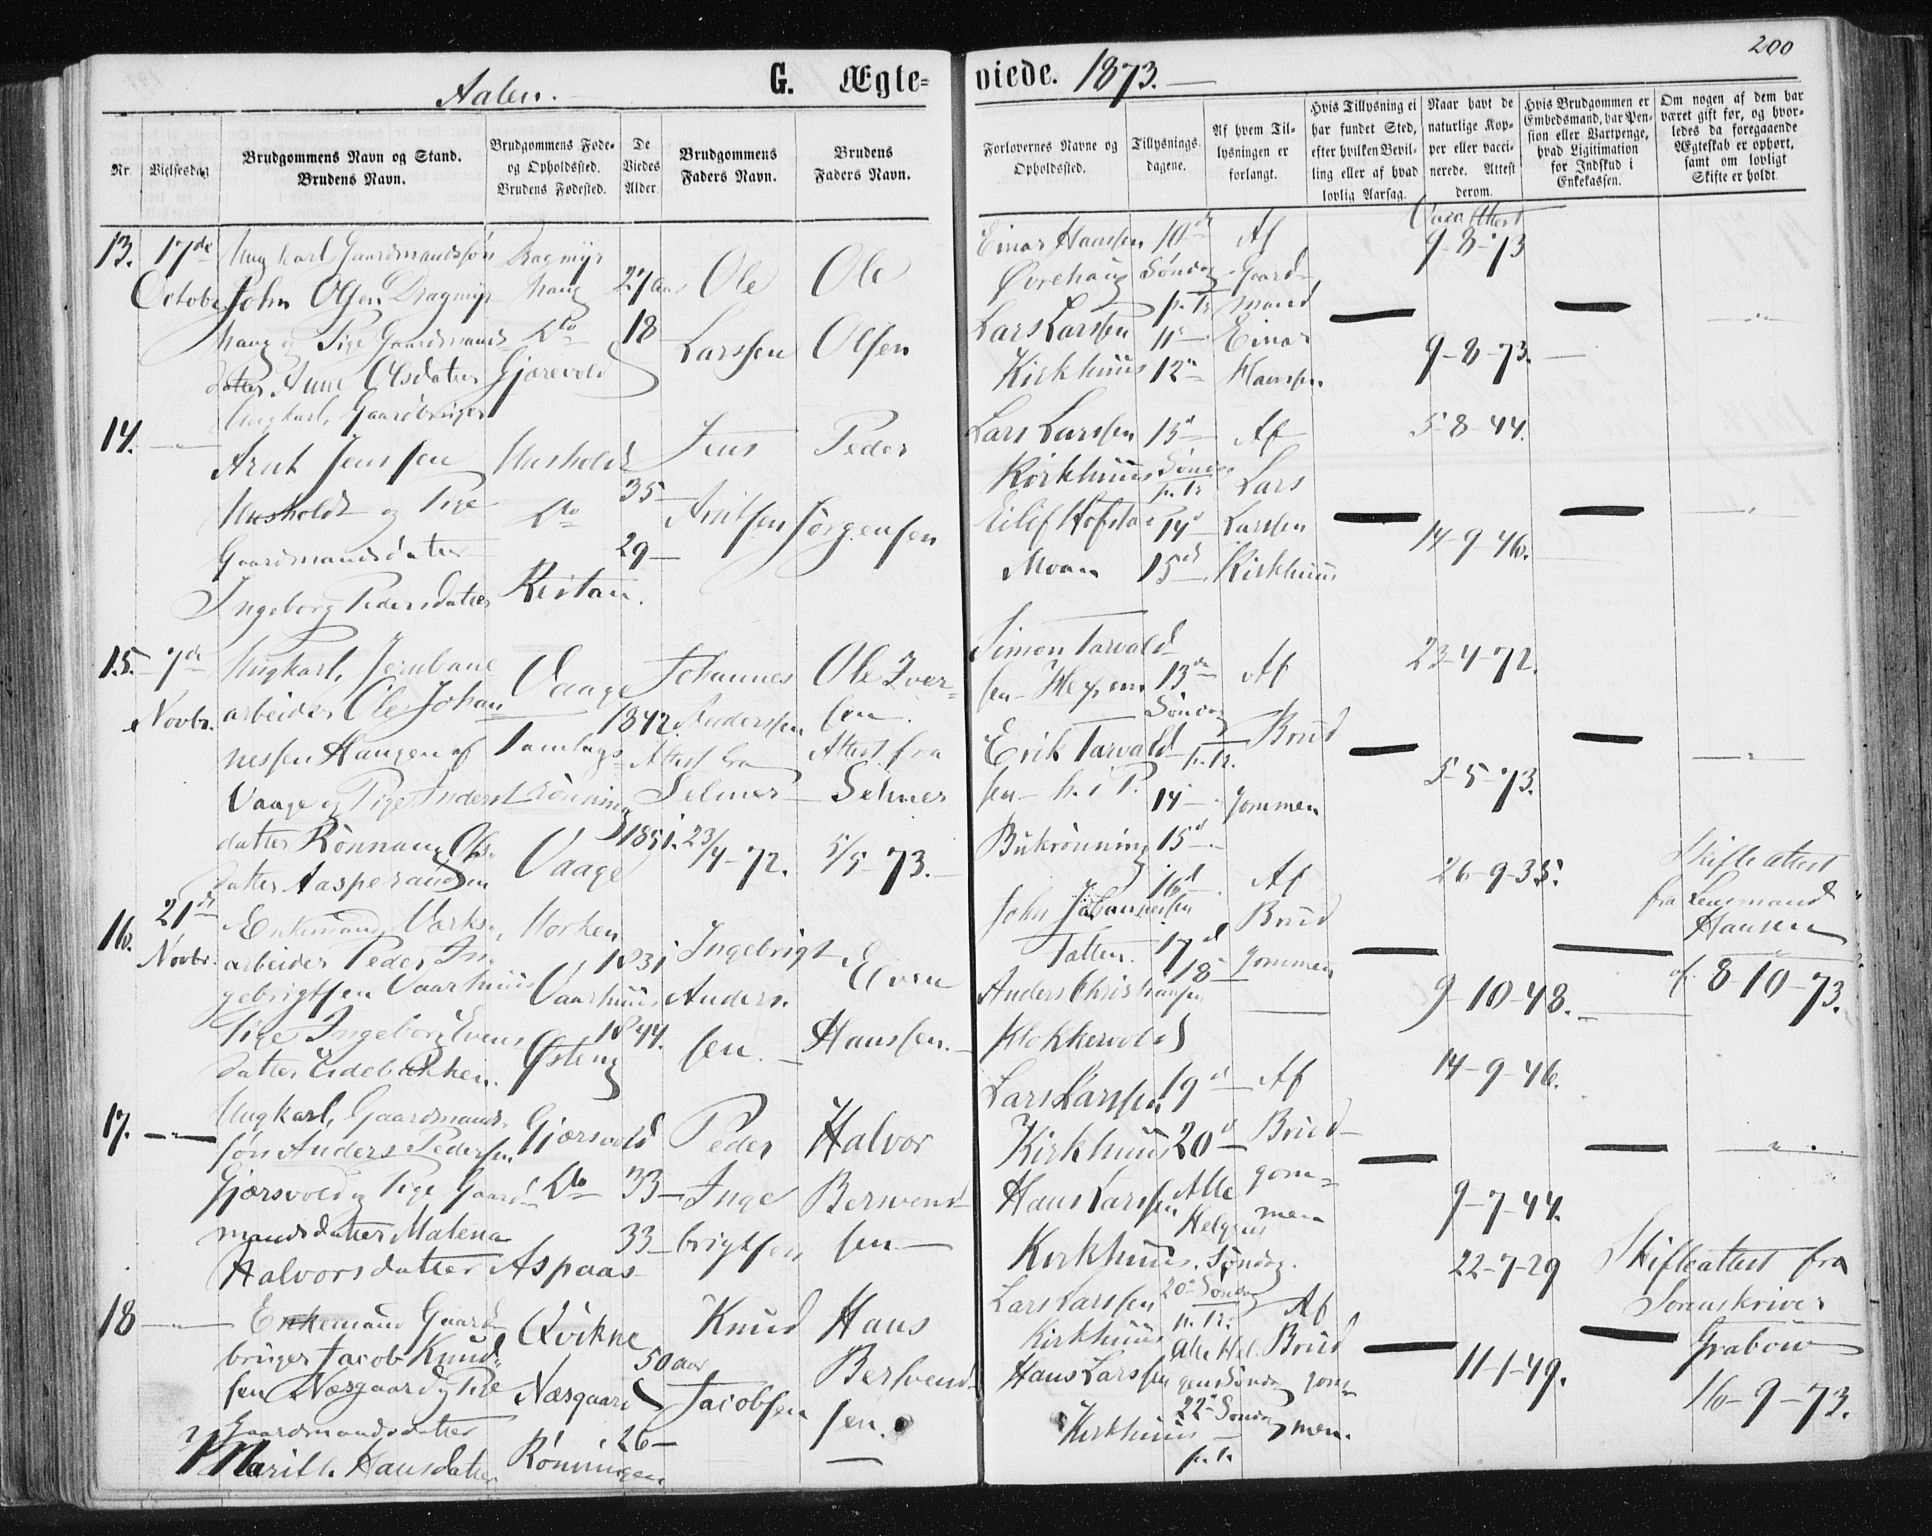 200
Aalen.
G. Ægte=
viede. 1873.
Nr
Vielsesdag
Brudgommens Navn og Stand.
Brudens Navn.
Brudgommens Føde-
og Opholdssted.
Brudens Fødested.
De
Viedes
Alder.
Brudgommens
Faders Navn.
Brudens
Faders Navn.
Forlovernes Navne og
Opholdssted.
Tillysnings-
dagene.
Af hvem Til-
lysningen er
forlangt.
Hvis Tillysning ei
har fundet Sted,
efter hvilken Bevil-
ling eller af hvad
lovlig Aarsag.
Naar havt de
naturlige Kop-
per eller vacci-
nerede. Attest
derom.
Hvis Brudgommen er
Embedsmand, har Pen-
sion eller Vartpenge,
hvad Ligitimation
for Indskud i
Enkekassen.
Om nogen af dem har
været gift før, og hvor-
ledes da foregaaende
Ægteskab er ophørt,
samt om lovligt
Skifte er holdt.
13.
17de
October
Ungkarl Gaardmandssøn
John Olsen Dragmyr
haug og Pige Gaardmands
datter Anne Olsdatter
Dragmyr
haug
Do
Gjærevold
27 Aar
18
Ole
Larssen
Ole
Olsen
Einar Hanssen
Øvrehaug
Lars Larssen
Kirkhuus
10de
Søndag
p. Tr
11
12
Af
Gaard-
mand
Einar
Hanssen
Vacc. Attest
9-8-73
9-8-73.
14.
Ungkarl, Gaardbruger
Arnt Jenssen
Husholdt og Pige
Gaardmandsdatter
Ingeborg Pedersdatter
Husholdt
Do
Reitan.
35
29
Jens
Arntsen
Peder
Jørgensen
Lars Larssen
Kirkhuus
Eilef Hofstad
Moan
13d
Søndag
p. Tr
14d
15d
Af
Lars
Larssen
Kirkhuus
5-8-44.
14-9-46.
15.
7de
Novbr.
Ungkarl, Jernbane
arbeider Ole Johan
nessen Haugen af
Vaage og Pige Anderst
datter Rønnaug Ols
datter
Vaage
Vaage
1842.
1851.
Johannes
Anderssen
Attest fra
Selmer
23/4-72.
Ole Iver=
sen.
Attest fra
Selmer
5/5-73.
Simon Tarvald
sen
Erik Tarvald
sen
Bukrønning
13de
Søndag
p. Tr.
14
15d
Af
Brud
gommen
23-4-72.
5-5-73.
16.
21de
Novbr.
Enkemand Værks-
arbeider Peder In
gebrigtsen Vaarhuus
Pige Ingeborg Evens
datter Eidebakken.
Morken
Vaarhuus
Østeng
1831
1844.
Ingebrigt
Anders.
sen.
Even
Hanssen.
John Johannessen
Tatten.
Anders Christiansen
Klokkervold
16d
17d
18
Af
Brud
gommen
26-9-35.
9-10-48.
Skifteattest
fra Lensmand
Hansen
af 8-10-73.
17.
Ungkarl, Gaardmands
søn Anders Pedersen
Gjærsvold og Pige Gaard
mandsdatter Malena
Halvorsdatter
Gjærsvold
Do
Aspaas
33
33
Peder
Inge
brigtsen
Halvor
Bersvend
sen
Lars Larssen
Kirkhuus
Hans Larssen
Kirkhuus.
19d
20d
Alle
Helgens
Søndag.
Af
Brud-
gom=
men
14-9-46.
9-7-44.
18
Enkemand Gaard
bruger Jacob Knud
sen Næsgaard og Pige
Gaardmandsdatter
Marith Hansdatter
Qvikne
Næsgaard
Rønningen
50 aar
26
Knud
Jacobsen
Hans
Bersvend
sen.
Lars Larssen
Kirkhuus
Hans Larssen
Kirkhuus
20 Søndag
p. Tr.
Alle Hel
gens Søndag
22 Søndag
p. Tr.
Af
Brud
gom
men.
22-7-29
11-1-49.
Skifteattest fra
Sorenskriver
Grabow
16-9-73.